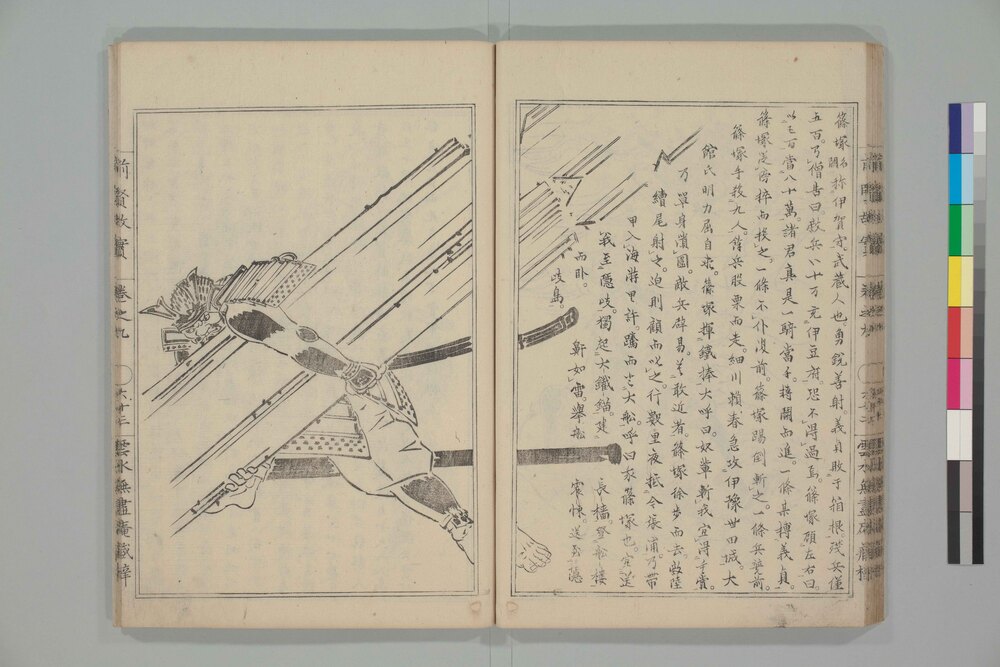 篠塚名闕稱伊賀守。武藏人也。勇鋭善射。義貞敗于箱根。殘兵僅
五百。乃僧告曰。敵兵八十万充伊豆府。恐不得過焉。篠塚顧左右曰。
以五百當八十萬。諸君真是一騎當千。轉鬪而進。一條某搏義貞。
篠塚逆捽而投之。一條不仆復前。篠塚踢倒斬之。一條兵競前。
篠塚手殺九人。餘兵股栗而走。細川頼春急攻伊豫世田城。大
館氏明力屈自裁。篠塚揮鐵棒大呼曰。奴輩斬我宜得重賞。
乃單身潰圍。敵兵辟易。莫敢近者。篠塚徐歩而去。敵陸
續尾射之。迫則顧而叱之。行數里。夜抵今張浦。乃帶
甲入海。游里許。躋而上大舩。呼曰。我篠塚也。宜送
我至隱岐。獨起大鐵錨。建長檣。登舩樓
而卧。鼾如雷。舉舩寒悚。送至隱
岐島。
前賢故實 卷之九 〇六十三 雲水無盡庵藏梓